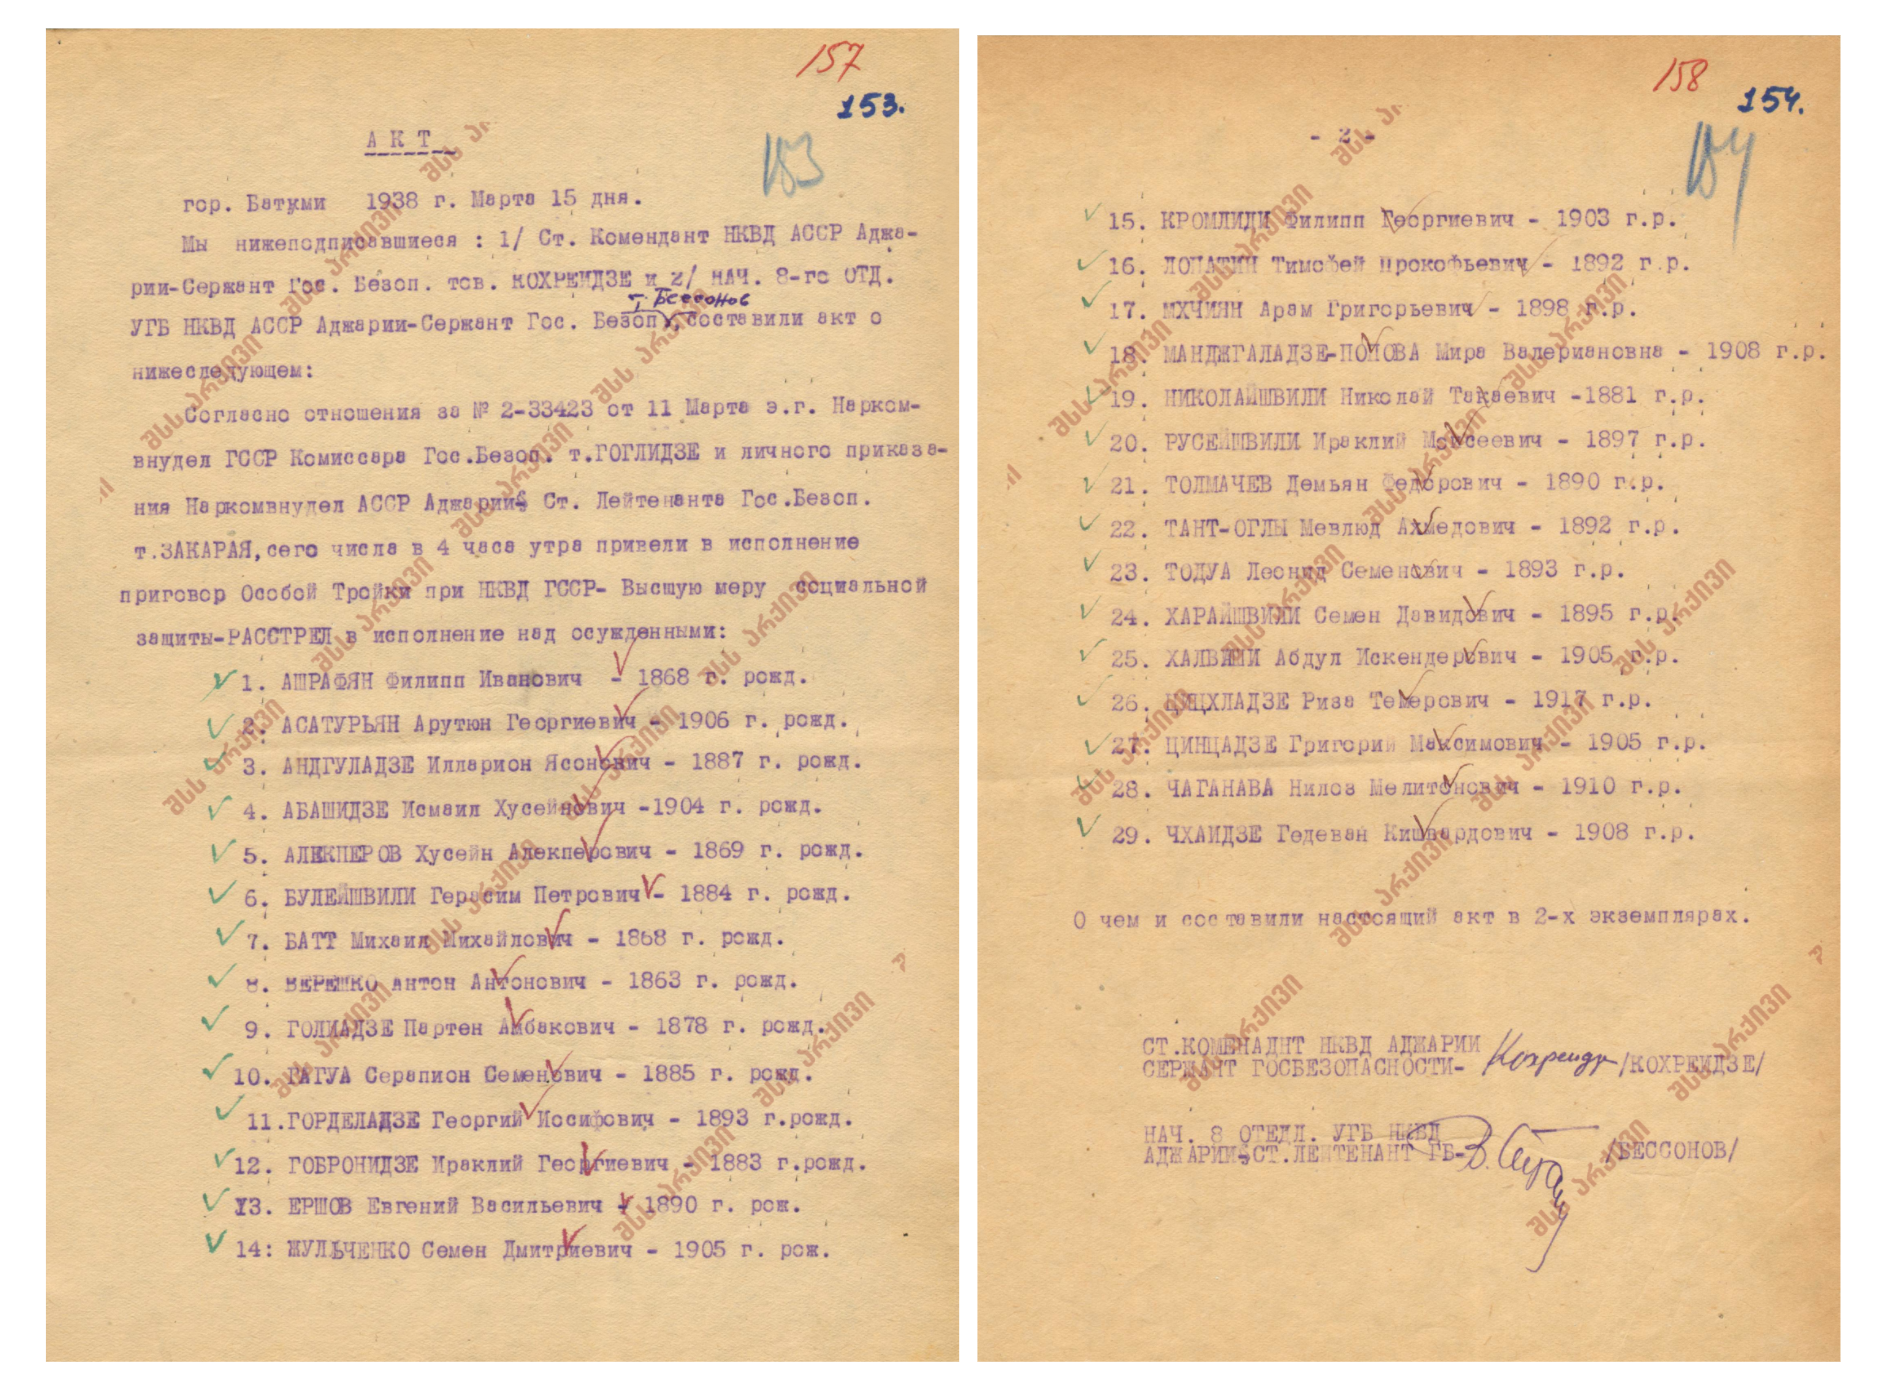 157
153.
183
А К Т
гор. Батуми 1938 г. Марта 15 дня.
Мы нижеподписавшиеся : 1/ Ст. Комендант НКВД АССР Аджа-
рии-Сержант Гос. Безоп. тов. КОХРЕИДЗЕ и 2/ НАЧ. 8-го ОТД.
т. Бессонов
УГБ НКВД АССР Аджарии-Сержант Гос. Безоп., составили акт о
нижеследующем:
Согласно отношения за № 2-33423 от 11 Марта э.г. Нарком-
внудел ГССР Комиссара Гос.Безоп. т.ГОГЛИДЗЕ и личного приказа-
ния Наркомвнудел АССР Аджарии Ст. Лейтенанта Гос.Безоп.
т.ЗАКАРАЯ,сего числа в 4 часа утра привели в исполнение
приговор Особой Тройки при НКВД ГССР- Высшую меру социальной
защиты-РАССТРЕЛ в исполнение над осужденными:
1. АШРАФЯН Филипп Иванович - 1868 г. рожд.
2. АСАТУРЬЯН Арутюн Георгиевич - 1906 г. рожд.
3. АНДГУЛАДЗЕ Илларион Ясонович - 1887 г. рожд.
4. АБАШИДЗЕ Исмаил Хусейнович -1904 г. рожд.
5. АЛЕКПЕРОВ Хусейн Алекперович - 1869 г. рожд.
6. БУЛЕЙШВИЛИ Герасим Петрович - 1884 г. рожд.
7. БАТТ Михаил Михайлович - 1868 г. рожд.
8. ВЕРЕШКО Антон Антонович - 1863 г. рожд.
9. ГОЛИАДЗЕ Партен Амбакович - 1878 г. рожд.
10. ГАГУА Серапион Семенович - 1885 г. рожд.
11.ГОРДЕЛАДЗЕ Георгий Иосифович - 1893 г.рожд.
12. ГОБРОНИДЗЕ Ираклий Георгиевич - 1883 г.рожд.
13. ЕРШОВ Евгений Васильевич - 1890 г. рож.
14: ЖУЛЬЧЕНКО Семен Дмитриевич - 1905 г. рож.
158
154.
184
- 2 -
15. КРОМЛИДИ Филипп Георгиевич - 1903 г.р.
16. ЛОПАТИН Тимофей Прокофьевич - 1892 г.р.
17. МХЧИЯН Арам Григорьевич - 1898 г.р.
18. МАНДЖГАЛАДЗЕ-ПОПОВА Мира Валериановна - 1908 г.р.
19. НИКОЛАЙШВИЛИ Николай Такаевич -1881 г.р.
20. РУСЕЙШВИЛИ Ираклий Моисеевич - 1897 г.р.
21. ТОЛМАЧЕВ Демьян Федорович - 1890 г.р.
22. ТАНТ-ОГЛЫ Мевлюд Ахмедович - 1892 г.р.
23. ТОДУА Леонид Семенович - 1893 г.р.
24. ХАРАЙШВИЛИ Семен Давидович - 1895 г.р.
25. ХАЛВАШИ Абдул Искендерович - 1905 г.р.
26. ЦЕЦХЛАДЗЕ Риза Темерович - 1917 г.р.
27. ЦИНЦАДЗЕ Григорий Максимович - 1905 г.р.
28. ЧАГАНАВА Нилоз Мелитонович - 1910 г.р.
29. ЧХАИДЗЕ Гедеван Кишвардович - 1908 г.р.
О чем и составили настоящий акт в 2-х экземплярах.
СТ.КОМЕНАДНТ НКВД АДЖАРИИ
СЕРЖАНТ ГОСБЕЗОПАСНОСТИ- Кохреидзе /КОХРЕИДЗЕ/
НАЧ. 8 ОТЕДЛ. УГБ НКВД
АДЖАРИИ-СТ.ЛЕЙТЕНАНТ ГБ- /БЕССОНОВ/
შსს არქივი